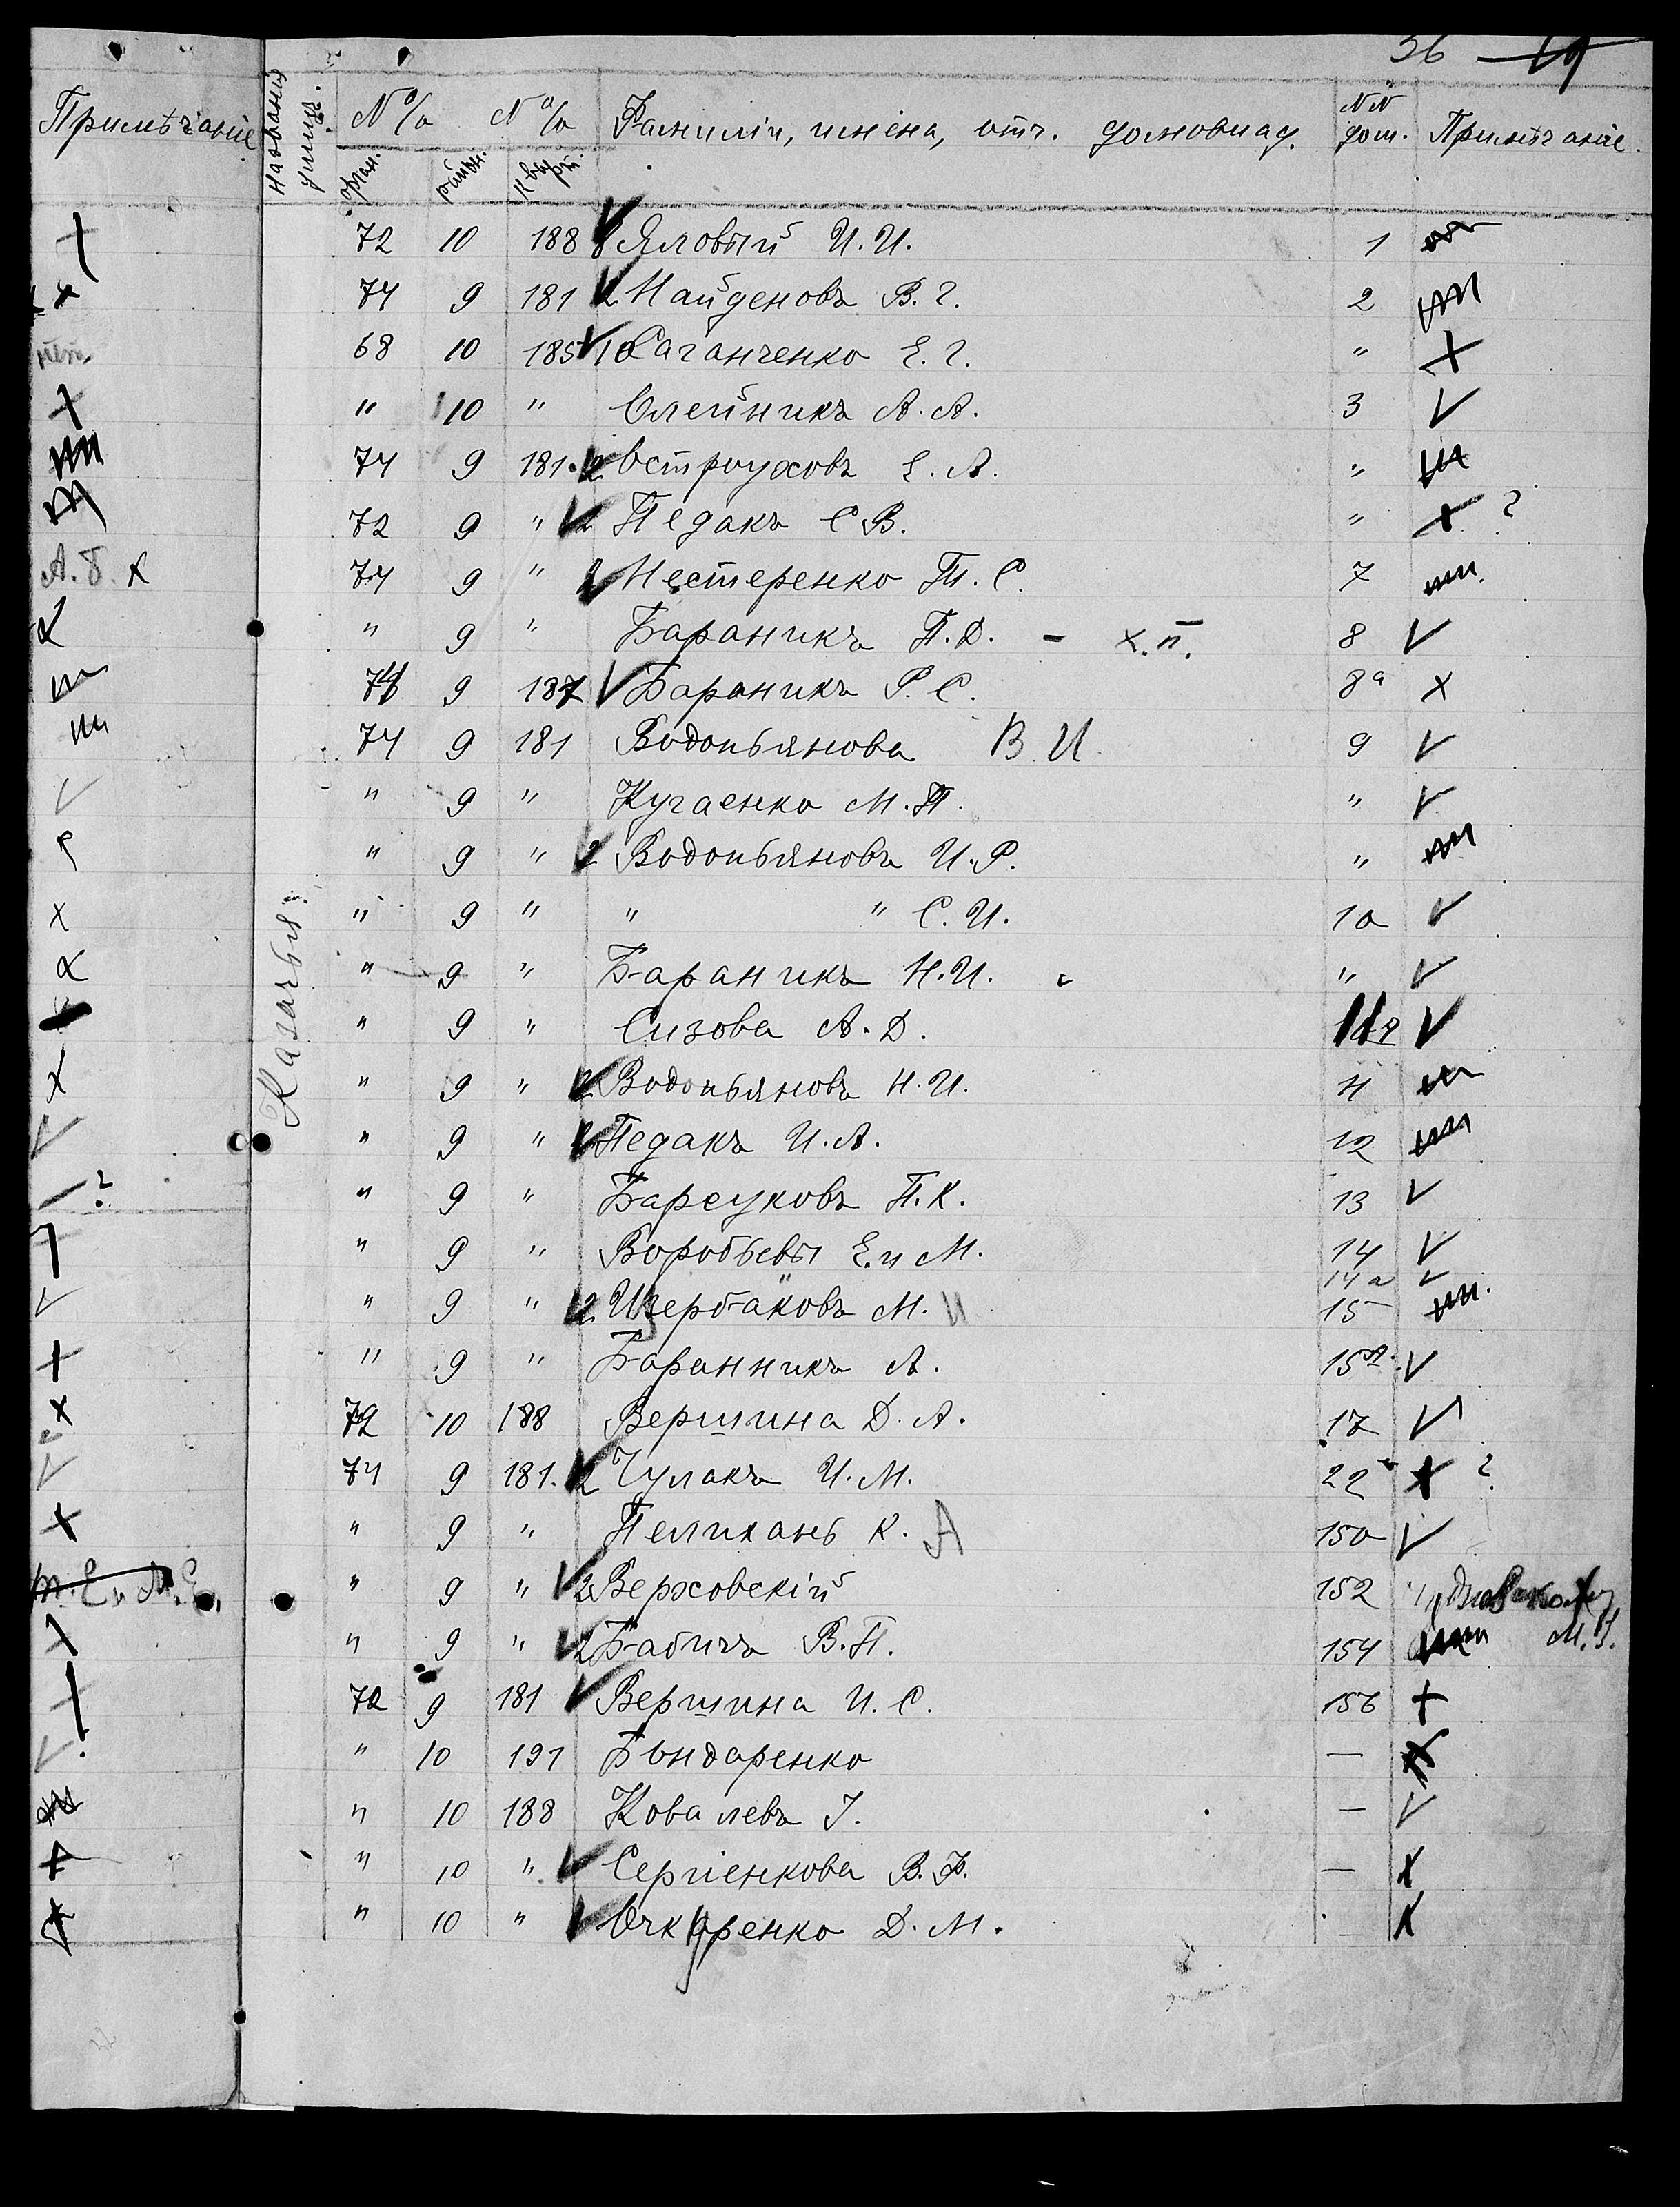 36
Примѣчаніе
Названія улицъ.
№№ №№ Фамиліи, имена, отч. домовлад. №№ дом. Примѣчаніе.
орган. район. кварт.
72 10 188 Яловый И.И. 1
74 9 181 2 Найденовъ В.Г. 2
68 10 185 Саганченко Е.Г. "
" 10 " Олейникъ А.А. 3
74 9 181. 2 Остроуховъ Е.А. "
72 9 " 2 Педакъ С В. " ?
74 9 " Нестеренко Т.С. 7
" 9 " Бараникъ П.Д. - х.п. 8
74 9 187 Бараникъ Р.С. 8а х
74 9 181 Водопьянова В И. 9
" 9 " Кугаенко М.П. "
" 9 " 2 Водопьяновъ И.Р. "
" 9 " " " С.И. 10
" 9 " Бараникъ Н.И. "
" 9 " Сизова А.Д.
" 9 " 2 Водопьяновъ Н.И. 11
" 9 " Педакъ И.А. 12
" 9 " Барсуковъ П.К. 13
" 9 " Воробьевы Е. и М. 14
14а
" 9 " 2 Щербаковъ М. И 15
" 9 " Баранникъ А. 15А.
72 10 188 Вершина Д.А. 17
74 9 181. 2 Чулакъ И.М. 22 ?
" 9 " Пелихань К. А 150
" 9 " 2 Верховскій 152
" 9 " 2 Бабичъ В.П. 154
72 9 181 Вершина И.С. 156
" 10 191 Бондаренко —
" 10 188 Ковалевъ І. —
" 10 " Сергіенкова В.Ф. —
" 10 " Очкуренко Д.М.
Казачья
А.Б. х
?